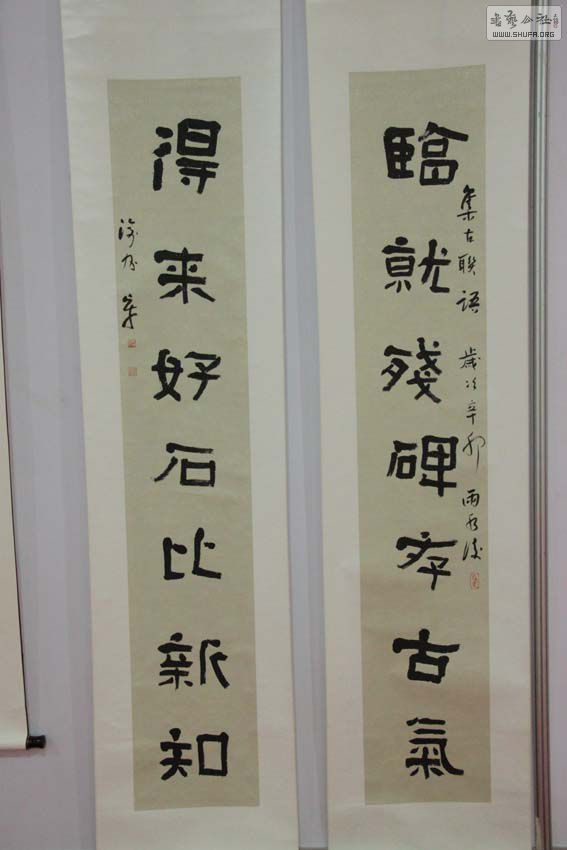 臨就殘碑存古氣
集古聯語 歲次辛卯 雨水後
得来好石比新知
書艺公社
WWW.SHUFA.ORG